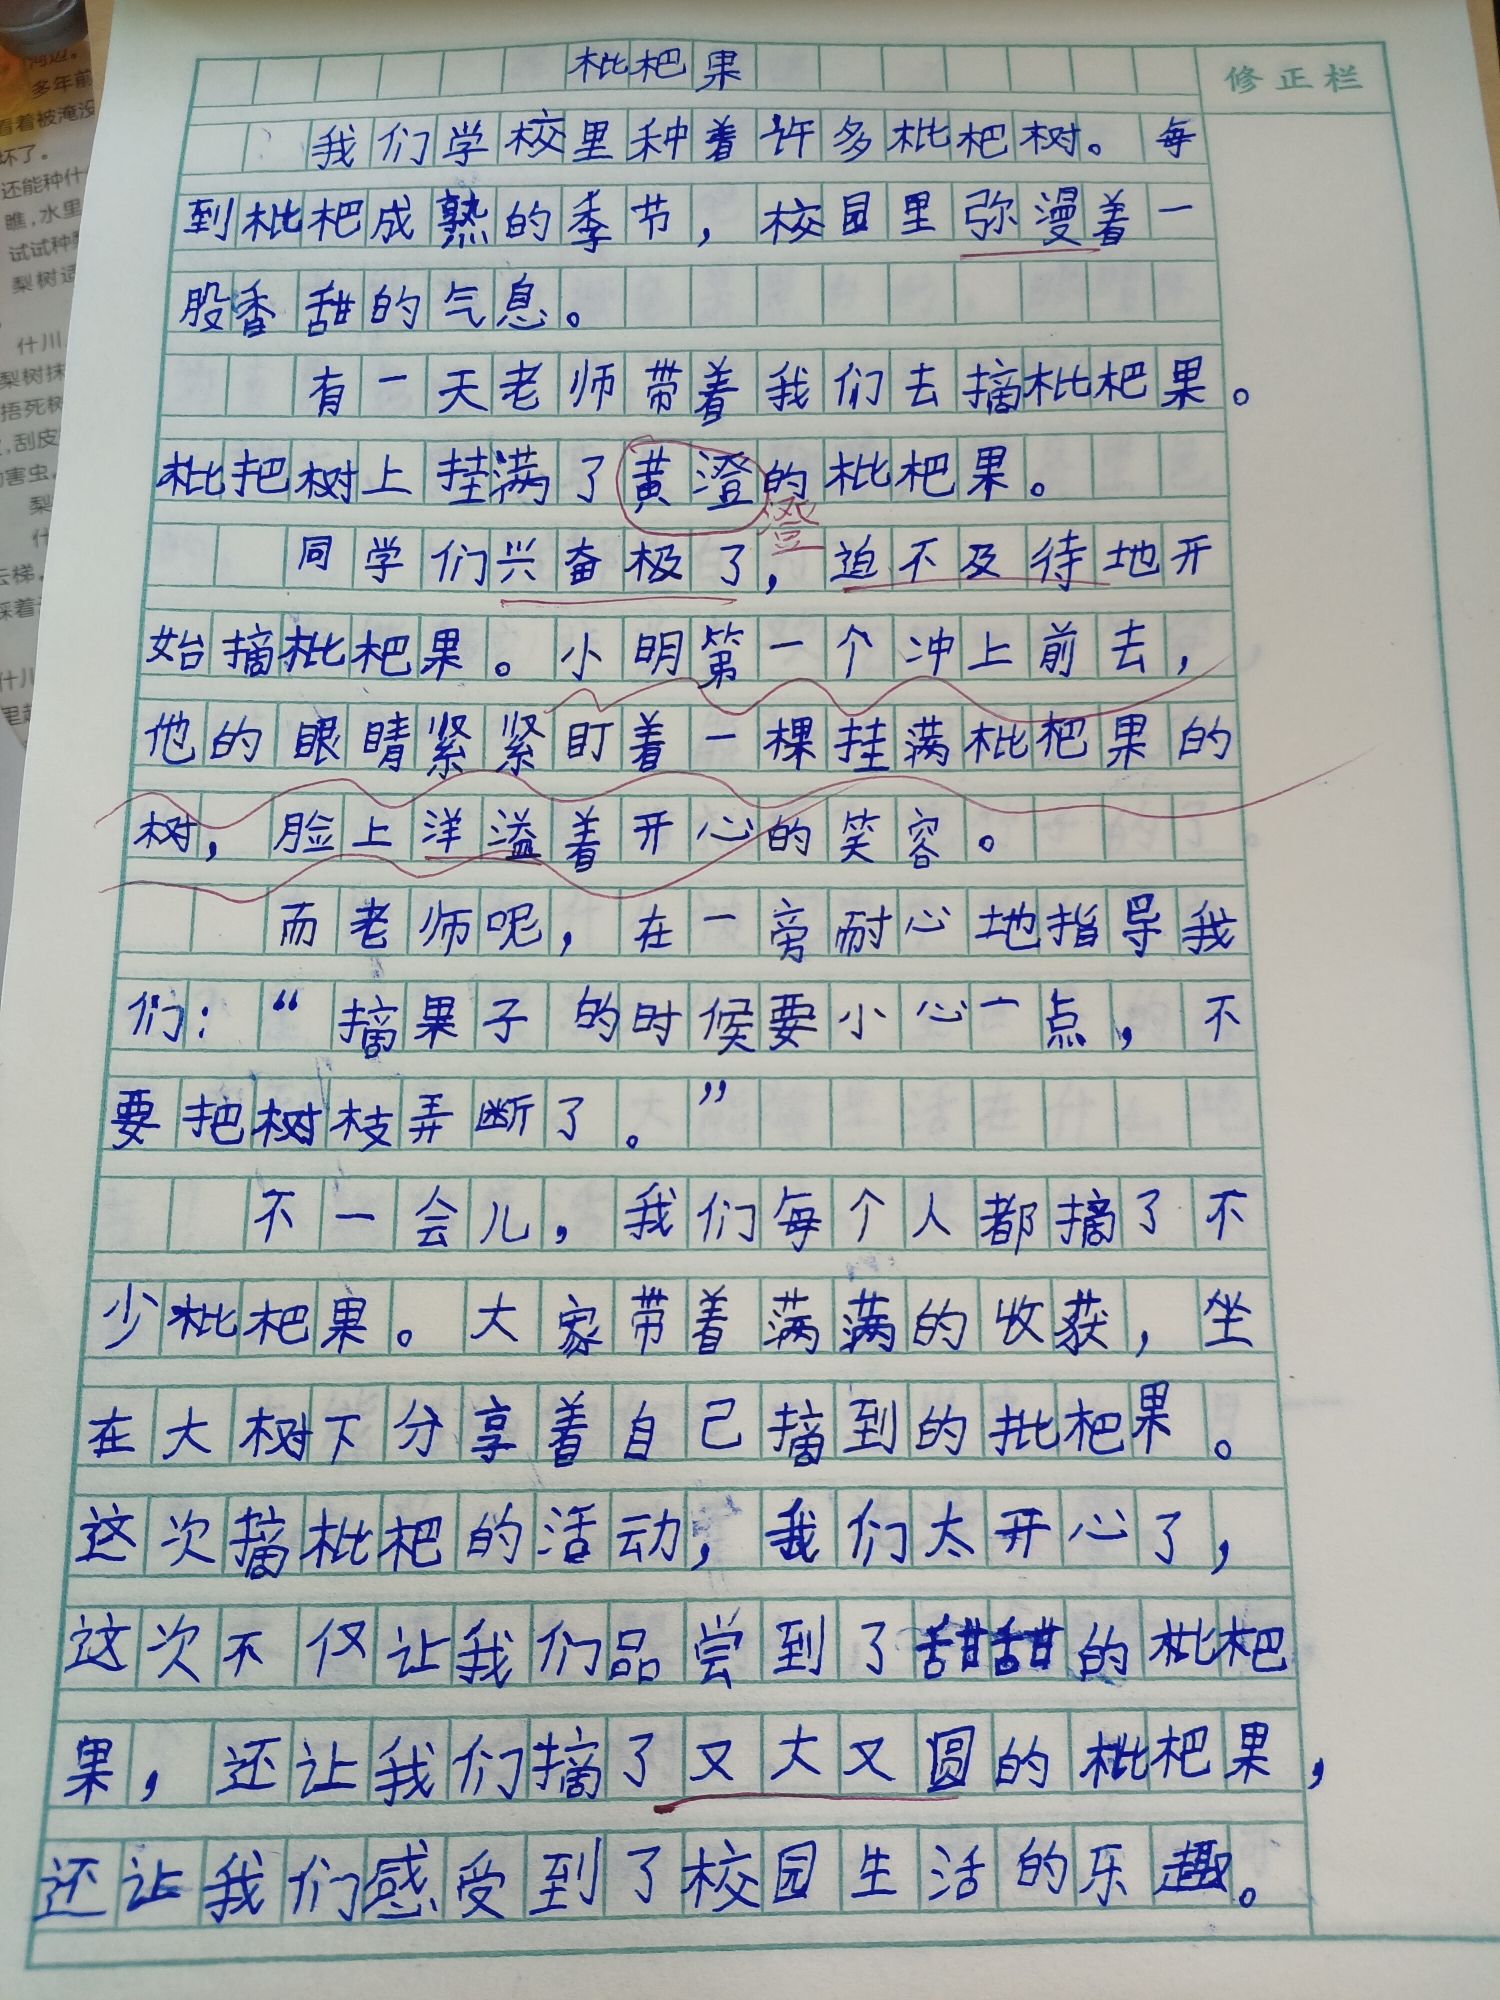 河边。
多年前
看着被淹没
坏了。
还能种什
瞧,水里
试试种
梨树适
什川
梨树抹
捂死树
刮皮
害虫
梨
什
云梯
踩着
什川
里
修正栏
枇杷果
我们学校里种着许多枇杷树。每
到枇杷成熟的季节，校园里弥漫着一
股香甜的气息。
有一天老师带着我们去摘枇杷果。
枇把树上挂满了黄澄的枇杷果。
澄
同学们兴奋极了，迫不及待地开
始摘枇杷果。小明第一个冲上前去，
他的眼睛紧紧盯着一棵挂满枇杷果的
树，脸上洋溢着开心的笑容。
而老师呢，在一旁耐心地指导我
们：“摘果子的时候要小心一点，不
要把树枝弄断了。”
不一会儿，我们每个人都摘了不
少枇杷果。大家带着满满的收获，坐
在大树下分享着自己摘到的批杷果。
这次摘枇杷的活动，我们太开心了，
这次不仅让我们品尝到了甜甜的枇杷
果，还让我们摘了又大又圆的枇杷果，
还让我们感受到了校园生活的乐趣。